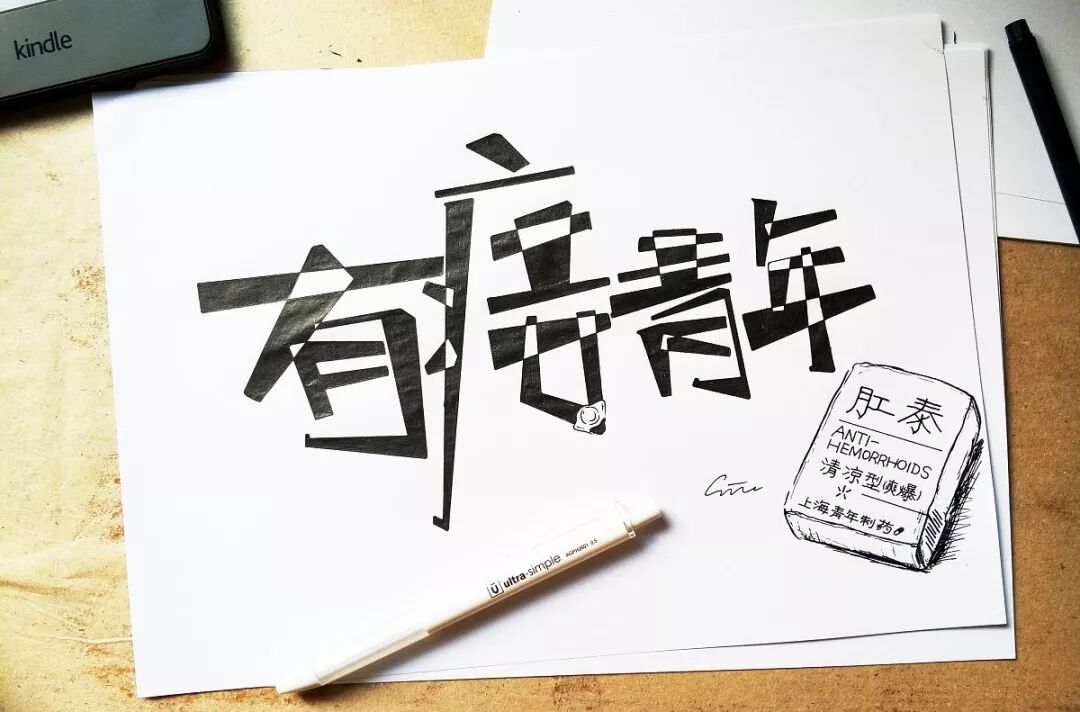 kindle
有痔青年
肛泰
ANTI-
HEMORRHOIDS
清凉型(爽爆)
上海青年制药
ultra-simple 0.5